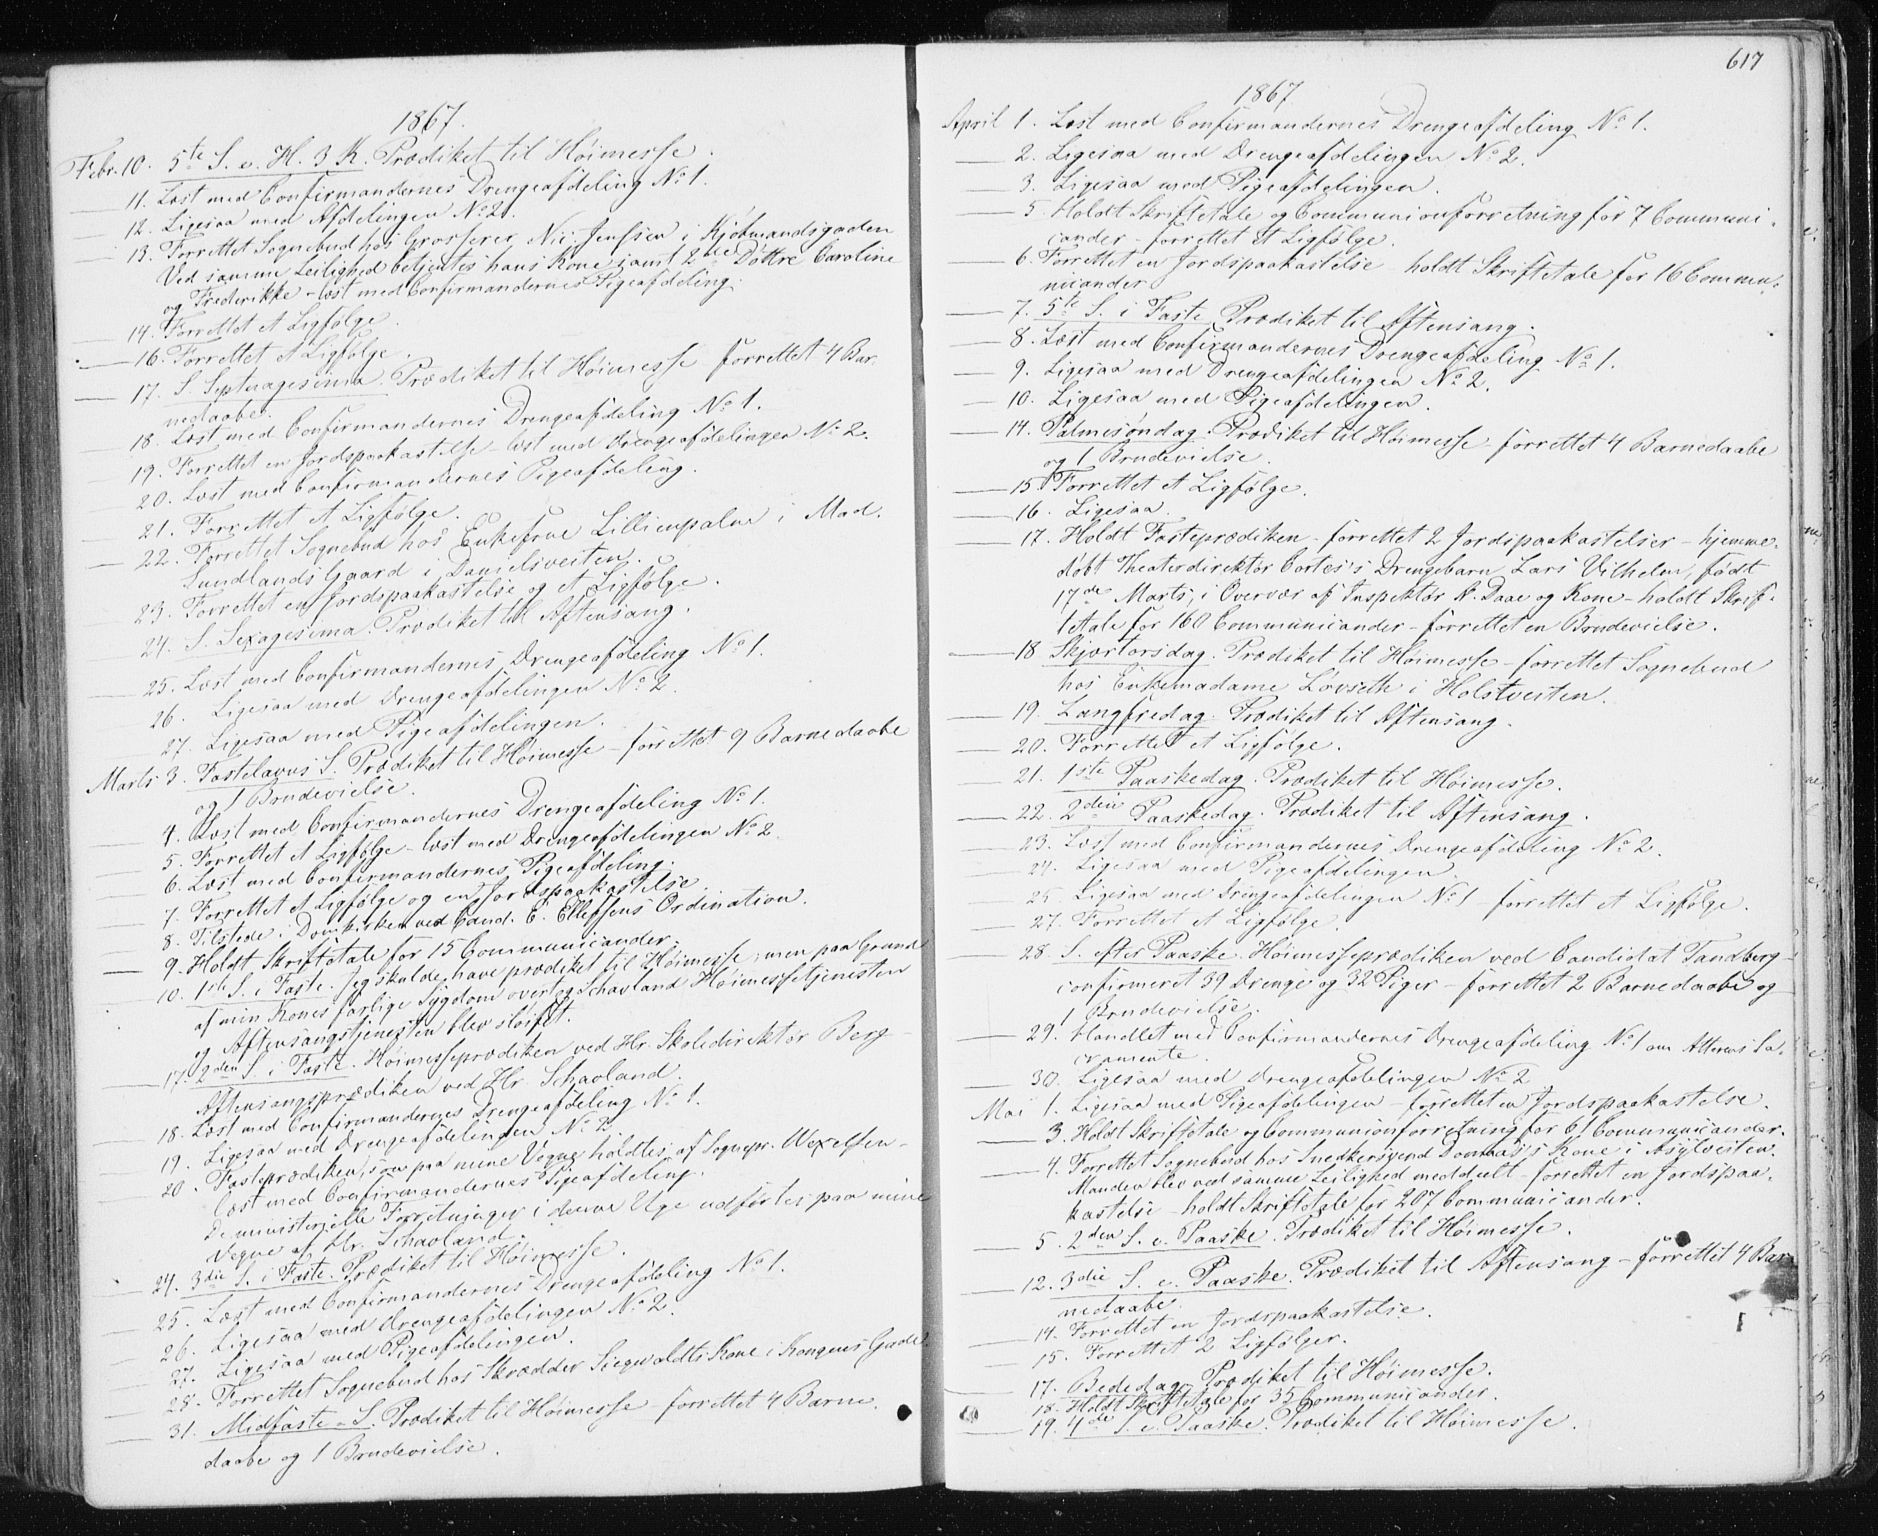 1867.
Febr. 10. 5te S. e. H. 3 K. Prædiket til Høimesse.
11. Læst med Confirmandernes Drengeafdeling No 1.
12. Ligesaa med Afdelingen No 2.
13. Forrettet Sognebud hos Grosserer Nic. Jenssen i Kjøbmandsgaden
Ved samme Leilighed betjentes hans Kone samt 2de Døttre Caroline
og Frederikke - læst med Confirmandernes Pigeafdeling.
14. Forrettet et Ligfølge.
16. Forrettet et Ligfølge.
17. S. Septuagesima. Prædiket til Høimesse forrettet 4 Bar-
nedaabe.
18. Læst med Confirmandernes Drengeafdeling No 1.
19. Forrettet en Jordspaakastelse - læst med Drengeafdelingen No 2.
20. Læst med Confirmandernes Pigeafdeling.
21. Forrettet et Ligfølge.
22. Forrettet Sognebud hos Enkefrue Lillienpalm i Mad.
Sundlands Gaard i Danielsveiten.
23. Forrettet en Jordspaakastelse og et Ligfølge.
24. S. Sexagesima. Prædiket til Aftensang.
25. Læst med Confirmandernes Drengeafdeling No 1.
26. Ligesaa med Drengeafdelingen No 2.
27. Ligesaa med Pigeafdelingen.
Marts 3. Fastelavns S. Prædiket til Høimesse - forrettet 9 Barnedaabe
og 1 Brudevielse.
4. Læst med Confirmandernes Drengeafdeling No 1.
5. Forrettet et Ligfølge - læst med Drengeafdelingen No 2.
6. Læst med Confirmandernes Pigeafdeling.
7. Forrettet et Ligfølge og en Jordspaakastelse.
8. Tilstede i Domkirken ved Cand. E. Ellefsens Ordination.
9. Holdt Skriftetale for 15 Communicander.
10. 1ste S. i Faste. Jeg skulde have prædiket til Høimesse, men paa Grund
af min Kones farlige Sygdom overtog Schavland Høimessetjenesten
og Aftensangstjenesten blev sløifet.
17. 2den S. i Faste. Høimesseprædiken ved Hr. Skoledirektør Berg -
Aftensangsprædiken ved Hr. Schavland.
18. Læst med Confirmandernes Drengeafdeling No 1.
19. Ligesaa med Drengeafdelingen No 2.
20. Fasteprædiken, som paa mine Vegne holdtes af Sognepr. Wexelsen -
læst med Confirmandernes Pigeafdeling.
De ministerielle Forretninger i denne Uge udførtes paa mine
Vegne af Hr. Schavland.
24. 3die S. i Faste. Prædiket til Høimesse.
25. Læst med Confirmandernes Drengeafdeling No 1.
26. Ligesaa med Drengeafdelingen No 2.
27. Ligesaa med Pigeafdelingen.
28. Forrettet Sognebud hos Skrædder Siegwaldts Kone i Kongens Gade.
31. Midfaste-S. Prædiket til Høimesse forrettet 4 Barne-
daabe og 1 Brudevielse.
617
1867
April 1. Læst med Confirmandernes Drengeafdeling No 1.
2. Ligesaa med Drengeafdelingen No 2.
3. Ligesaa med Pigeafdelingen.
5. Holdt Skriftetale og Communionforretning for 7 Communi-
cander - forrettet et Ligfølge.
6. Forrettet en Jordspaakastelse - holdt Skriftetale for 16 Commu-
nicander.
7. 5te S. i Faste. Prædiket til Aftensang.
8. Læst med Confirmandernes Drengeafdeling No 1.
9. Ligesaa med Drengeafdelingen No 2.
10. Ligesaa med Pigeafdelingen.
14. Palmesøndag. Prædiket til Høimesse forrettet 4 Barnedaabe
og 1 Brudevielse.
15. Forrettet et Ligfølge.
16. Ligesaa.
17. Holdt Fasteprædiken - forrettet 2 Jordspaakastelser - hjemme-
døbt Theaterdirektør Cortes's Drengebarn Lars Vilhelm, født
17de Marts, i Overvær af Inspektør N. Daae og Kone - holdt Skrif-
tetale for 160 Communicander - forrettet en Brudevielse.
18. Skjærtorsdag. Prædiket til Høimesse - forrettet Sognebud
hos Enkemadame Løvseth i Holstveiten.
19. Langfredag. Prædiket til Aftensang.
20. Forrettet et Ligfølge.
21. 1ste Paaskedag. Prædiket til Høimesse.
22. 2den Paaskedag. Prædiket til Aftensang.
23. Læst med Confirmandernes Drengeafdeling No 2.
24. Ligesaa med Pigeafdelingen.
25. Ligesaa med Drengeafdelingen No 1 - forrettet et Ligfølge.
27. Forrettet et Ligfølge.
28. S. efter Paaske. Høimesseprædiken ved Candidat Tandberg -
confirmeret 39 Drenge og 32 Piger - forrettet 2 Barnedaabe og
1 Brudevielse.
29. Handlet med Confirmandernes Drengeafdeling No 1 om Alterens Sa-
cramente.
30. Ligesaa med Drengeafdelingen No 2
Mai 1. Ligesaa med Pigeafdelingen - forrettet en Jordspaakastelse.
3. Holdt Skriftetale og Communionforretning for 61 Communicander.
4. Forrettet Sognebud hos Snedkersvend Dommas's Kone i Asylveiten.
Manden blev ved samme Leilighed meddeelt - forrettet en Jordspaa-
kastelse - holdt Skriftetale for 207 Communicander.
5. 2den S. e. Paaske. Prædiket til Høimesse.
12. 3die S. e. Paaske. Prædiket til Aftensang - forrettet 4 Bar-
nedaabe.
14. Forrettet en Jordspaakastelse.
15. Forrettet 2 Ligfølger.
17. Bededag. Prædiket til Høimesse.
18. Holdt Skriftetale for 35 Communicander.
19. 4de S. e. Paaske. Prædiket til Høimesse.